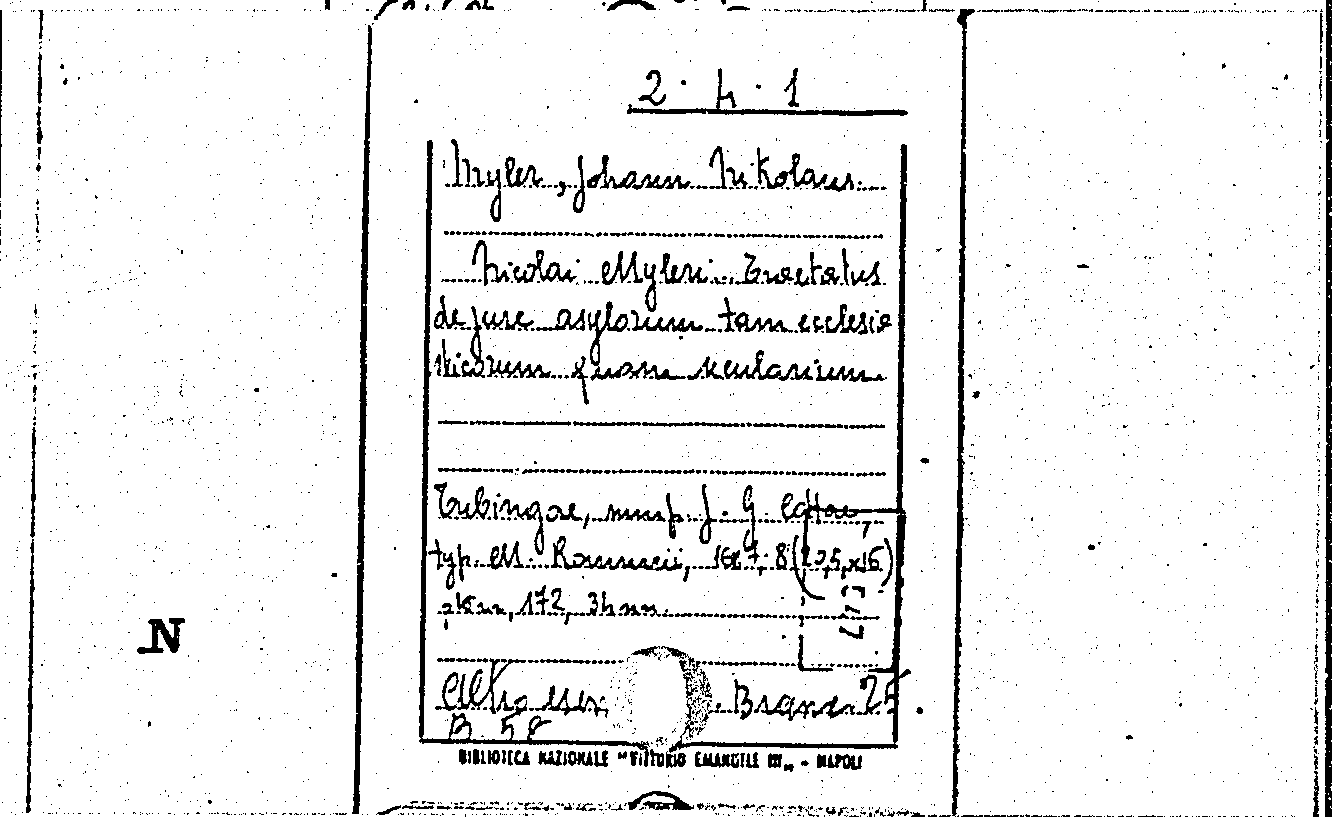 2 · 4 · 1
Myler, Johann Nikolaus.
Nicolai Myleri Tractatus
de jure asylorum tam ecclesia
sticorum quam secularium
Tubingae, sump. J. G. Cottae,
typ. M. Rommeii, 1687, 8
172, 34 nn.
N
Altro esem. Branc. 25
B 58
BIBLIOTECA NAZIONALE "VITTORIO EMANUELE III„ - NAPOLI